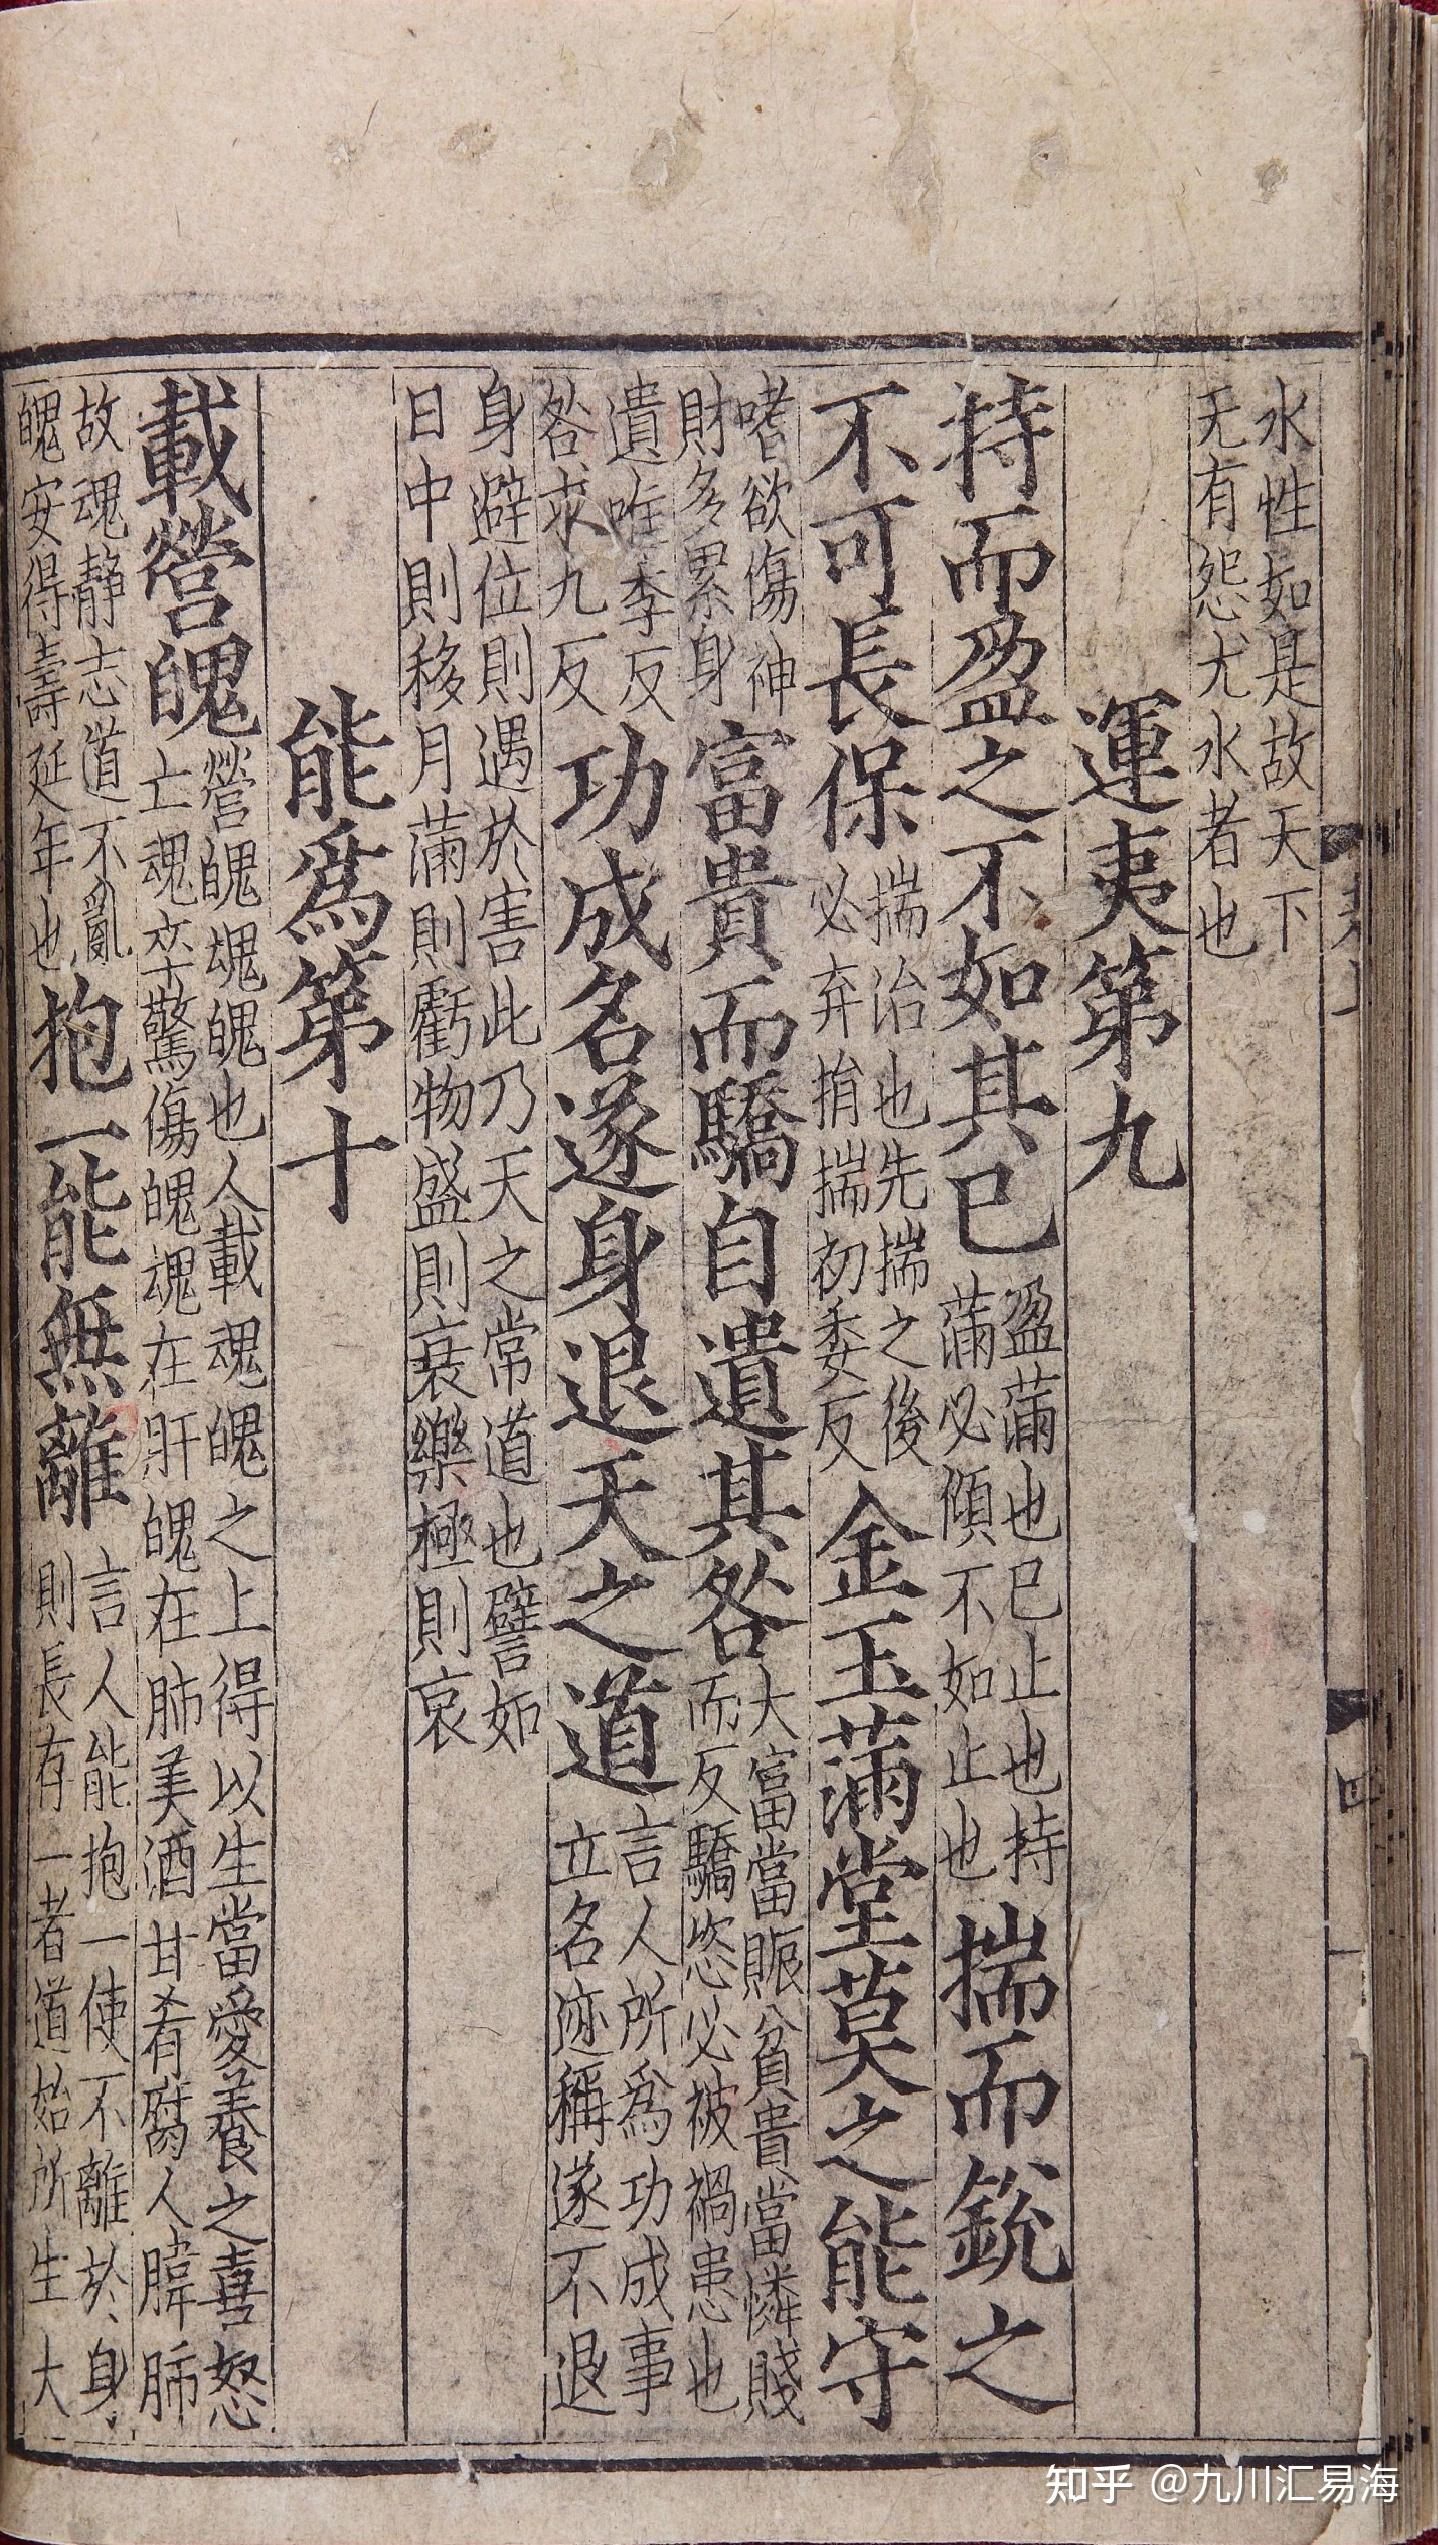 水性如是故天下
无有怨尤水者也
運夷第九
持而盈之不如其已
盈滿也已止也持
滿必傾不如止也
揣而銳之
不可長保
揣治也先揣之後
必弃捐揣初委反
金玉滿堂莫之能守
嗜欲傷神
財多累身
富貴而驕自遺其咎
大富當賑貧貴當憐賤
而反驕恣必被禍患也
遺唯季反
咎求九反
功成名遂身退天之道
言人所為功成事
立名迹稱遂不退
身避位則遇於害此乃天之常道也譬如
日中則移月滿則虧物盛則衰樂極則哀
能為第十
載營魄
營魄魂魄也人載魂魄之上得以生當愛養之喜怒
亡魂卒驚傷魄魂在肝魄在肺美酒甘肴腐人腪肺
故魂静志道不亂
魄安得壽延年也
抱一能無離
言人能抱一使不離於身
則長存一者道始所生大
四
知乎 @九川汇易海